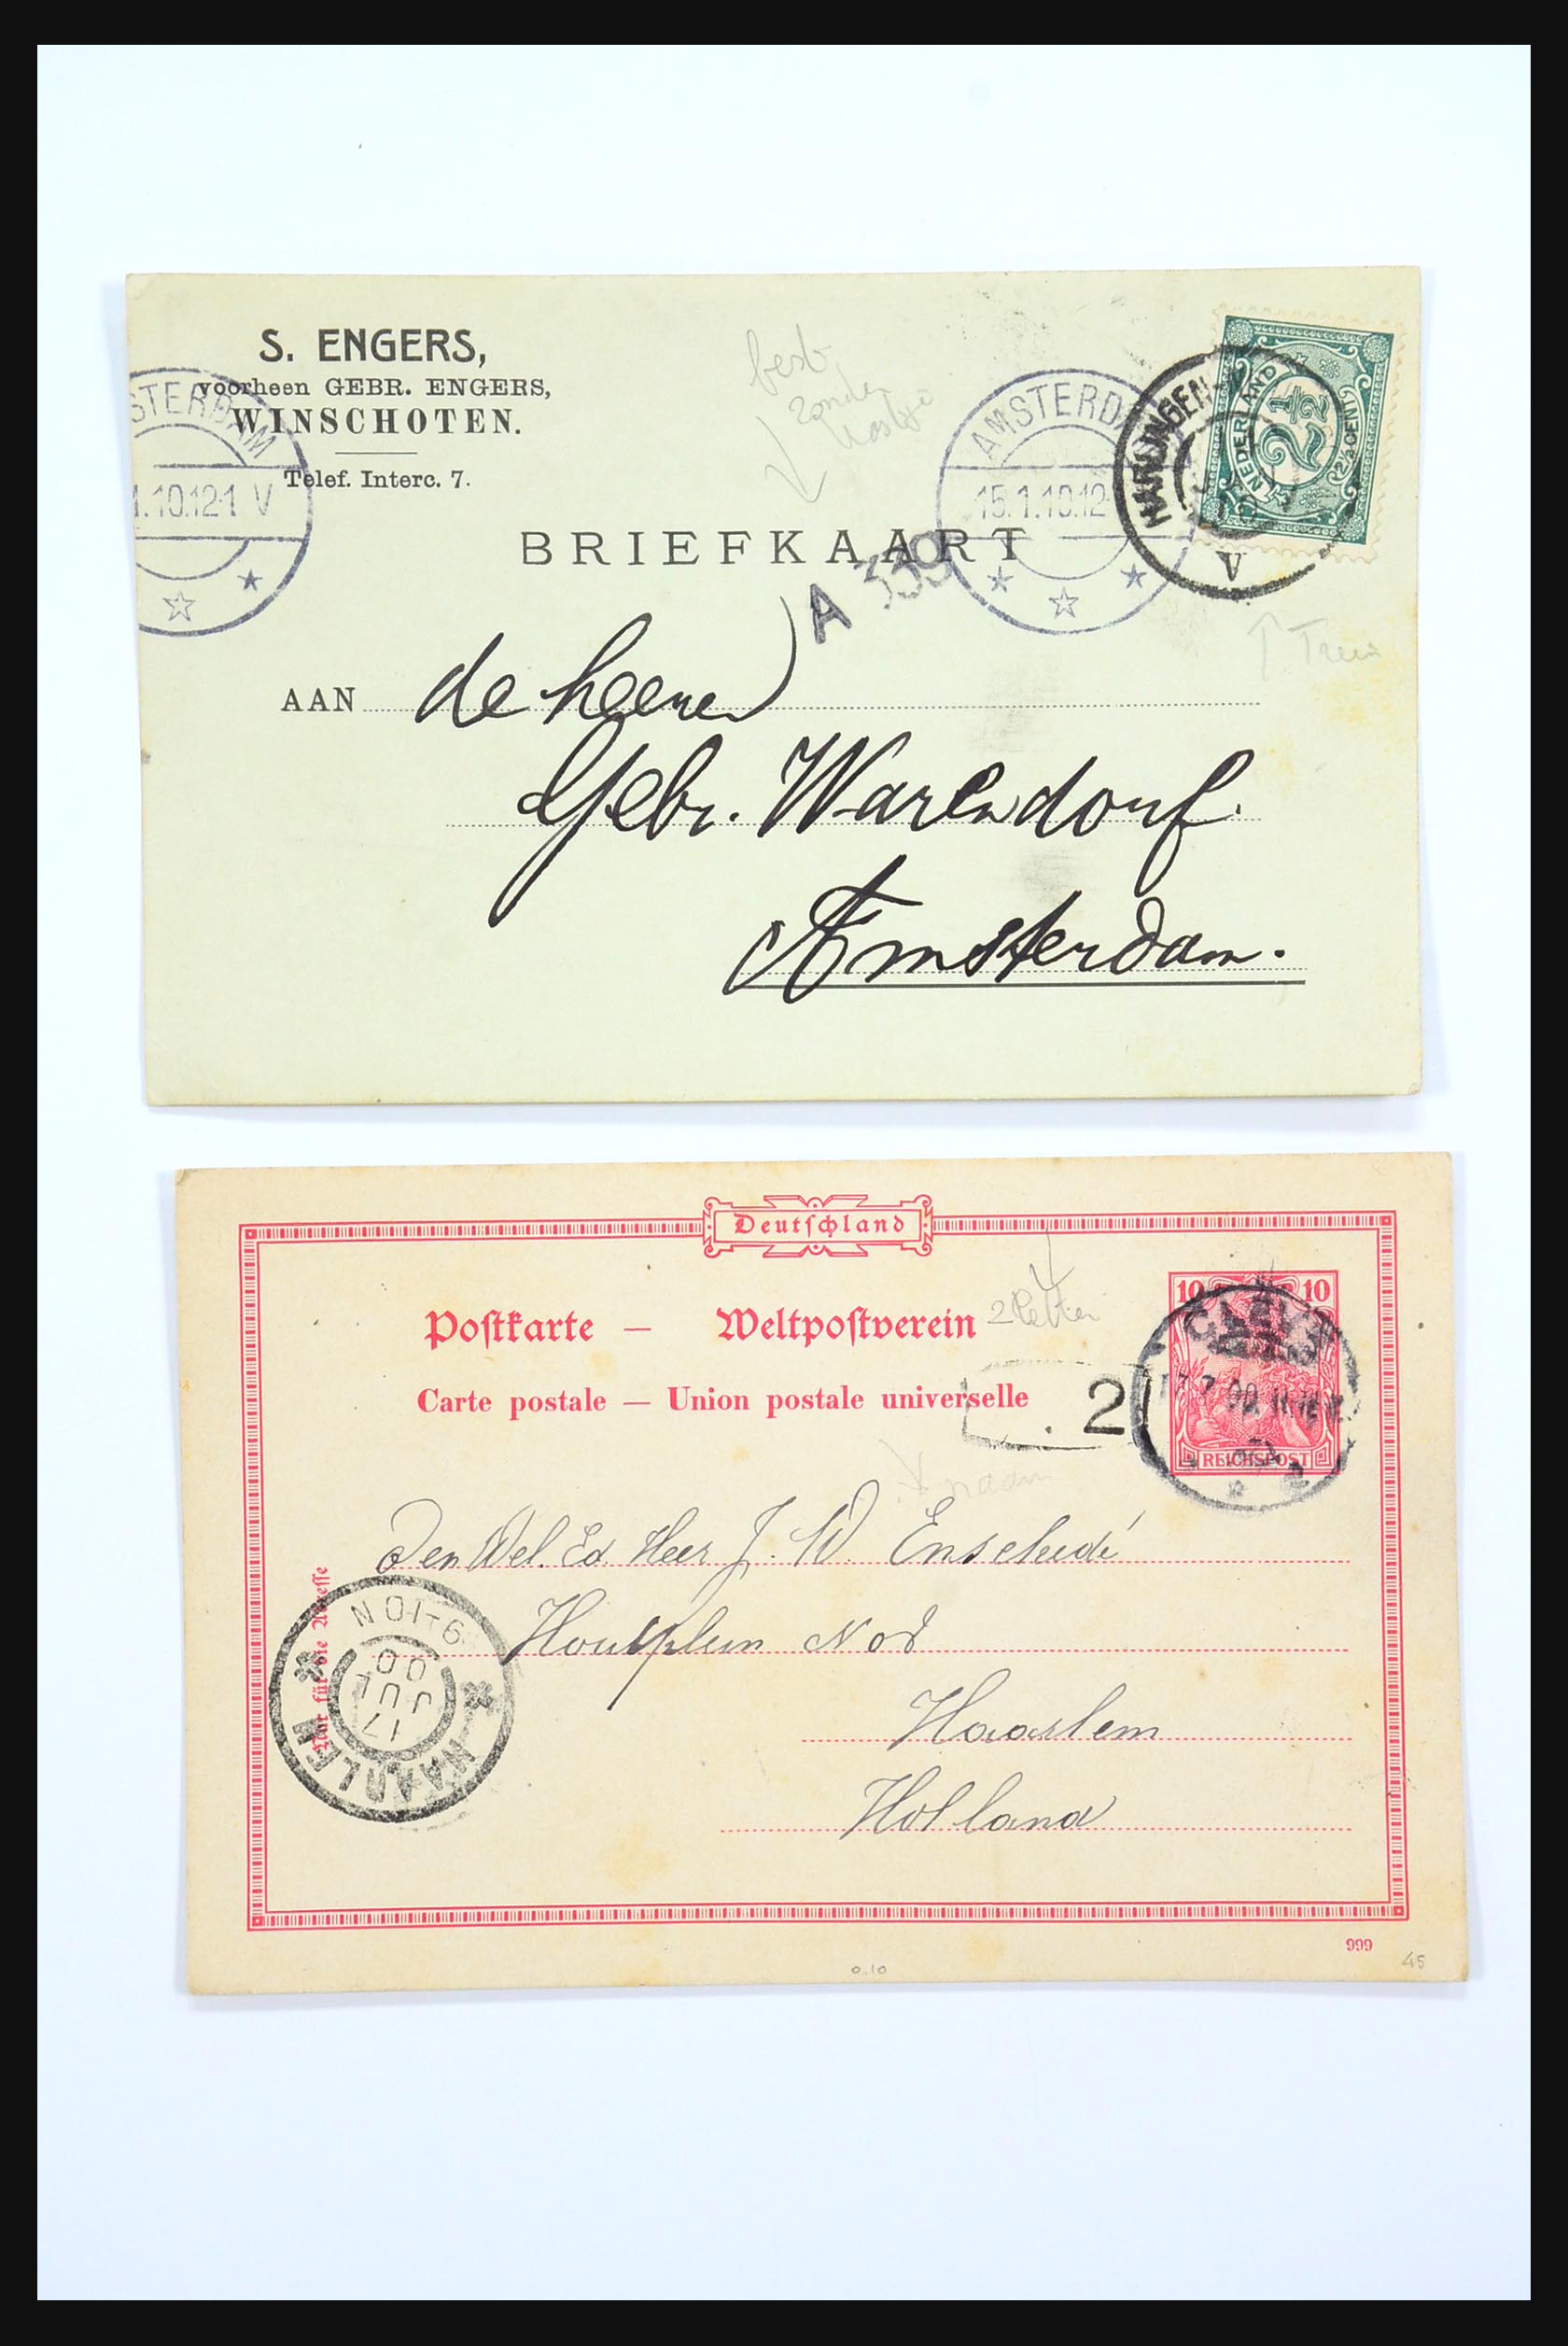 S. ENGERS,
voorheen GEBR. ENGERS,
WINSCHOTEN.
Telef. Interc. 7.
STERDAM
1.10.12-1 V
best
zonder
AMSTERDA
15.1.10.12
HARLINGEN
V
NEDERLAND
2½
2½ CENT
BRIEFKAART
A 339
Trein
AAN de heeren
Gebr. Warendorf.
Amsterdam.
Deutschland
Postkarte — Weltpostverein
2 letter
Carte postale — Union postale universelle
. 2
10 10
REICHSPOST
CLEVE
naam
Den Wel. Ed. Heer J. W. Enschedé
Houtplein No 8
Haarlem
Holland
Nur für die Adresse
HAARLEM
17
JUL
00
9-10N
999
0.10
45